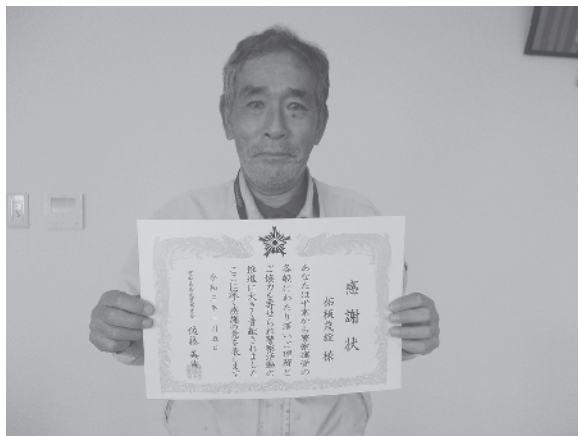 感謝状
様
あなたは平素から警察運営の
各般にわたり深いご理解と
ご協力を寄せられ警察活動の
推進に大きく貢献されました
ここに深く感謝の意を表します
令和二年一月五日
佐藤